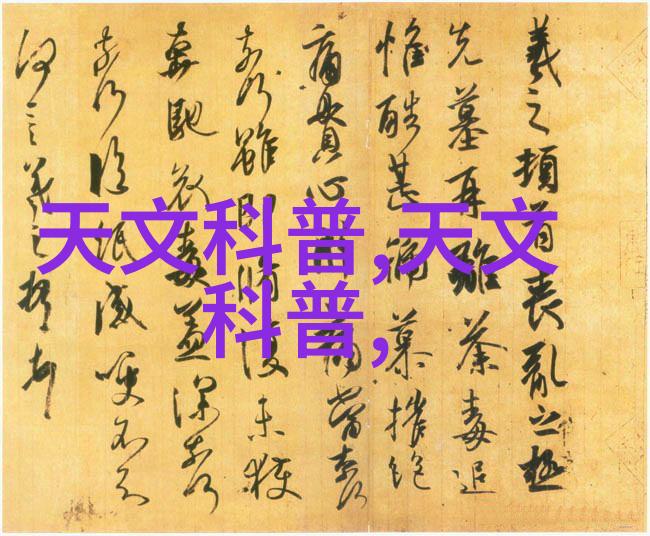 天文科普,天文
科普,
羲之頓首喪亂之極
先墓再離荼毒追
惟酷甚號慕摧絕
痛貫心肝痛當奈何
奈何雖即脩復未獲
奔馳哀毒益深奈何
奈何臨紙感哽不知
何言羲之頓首